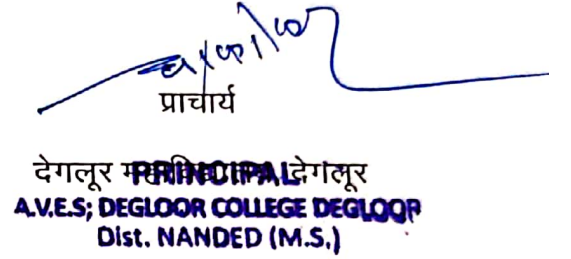 प्राचार्य
देगलूर महाविद्यालय देगलूर
PRINCIPAL
A.V.E.S; DEGLOOR COLLEGE DEGLOOR
Dist. NANDED (M.S.)